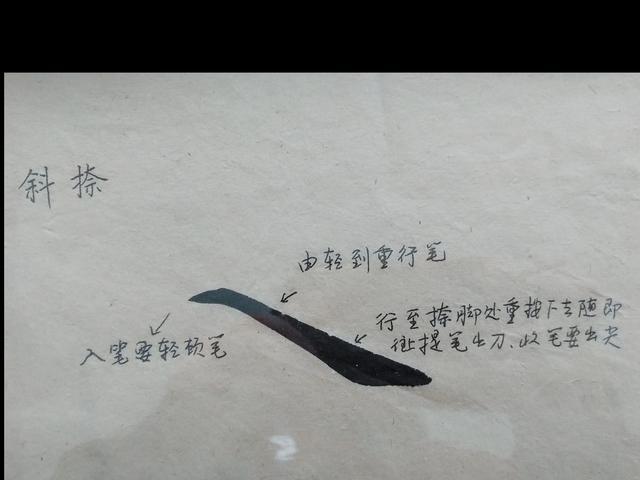 斜捺
由轻到重行笔
行至捺脚处重按下去随即
往提笔出刀、收笔要出尖
入笔要轻顿笔